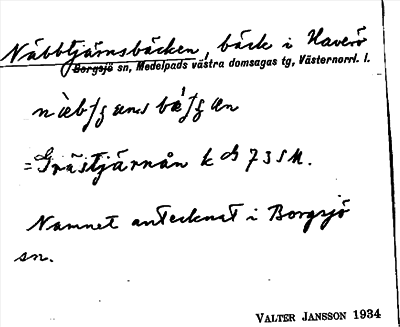 Näbbtjärnsbäcken, bäck i Haverö
Borgsjö sn, Medelpads västra domsagas tg, Västernorrl. l.
= Grästjärnån k
Namnet antecknat i Borgsjö
sn.
VALTER JANSSON 1934